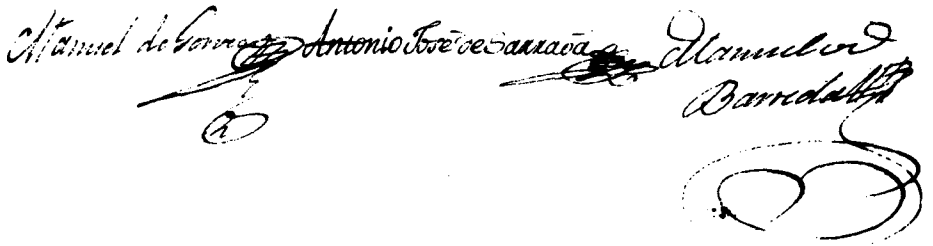 Manuel de Antonio José de Larrada Manuel de
Barreda